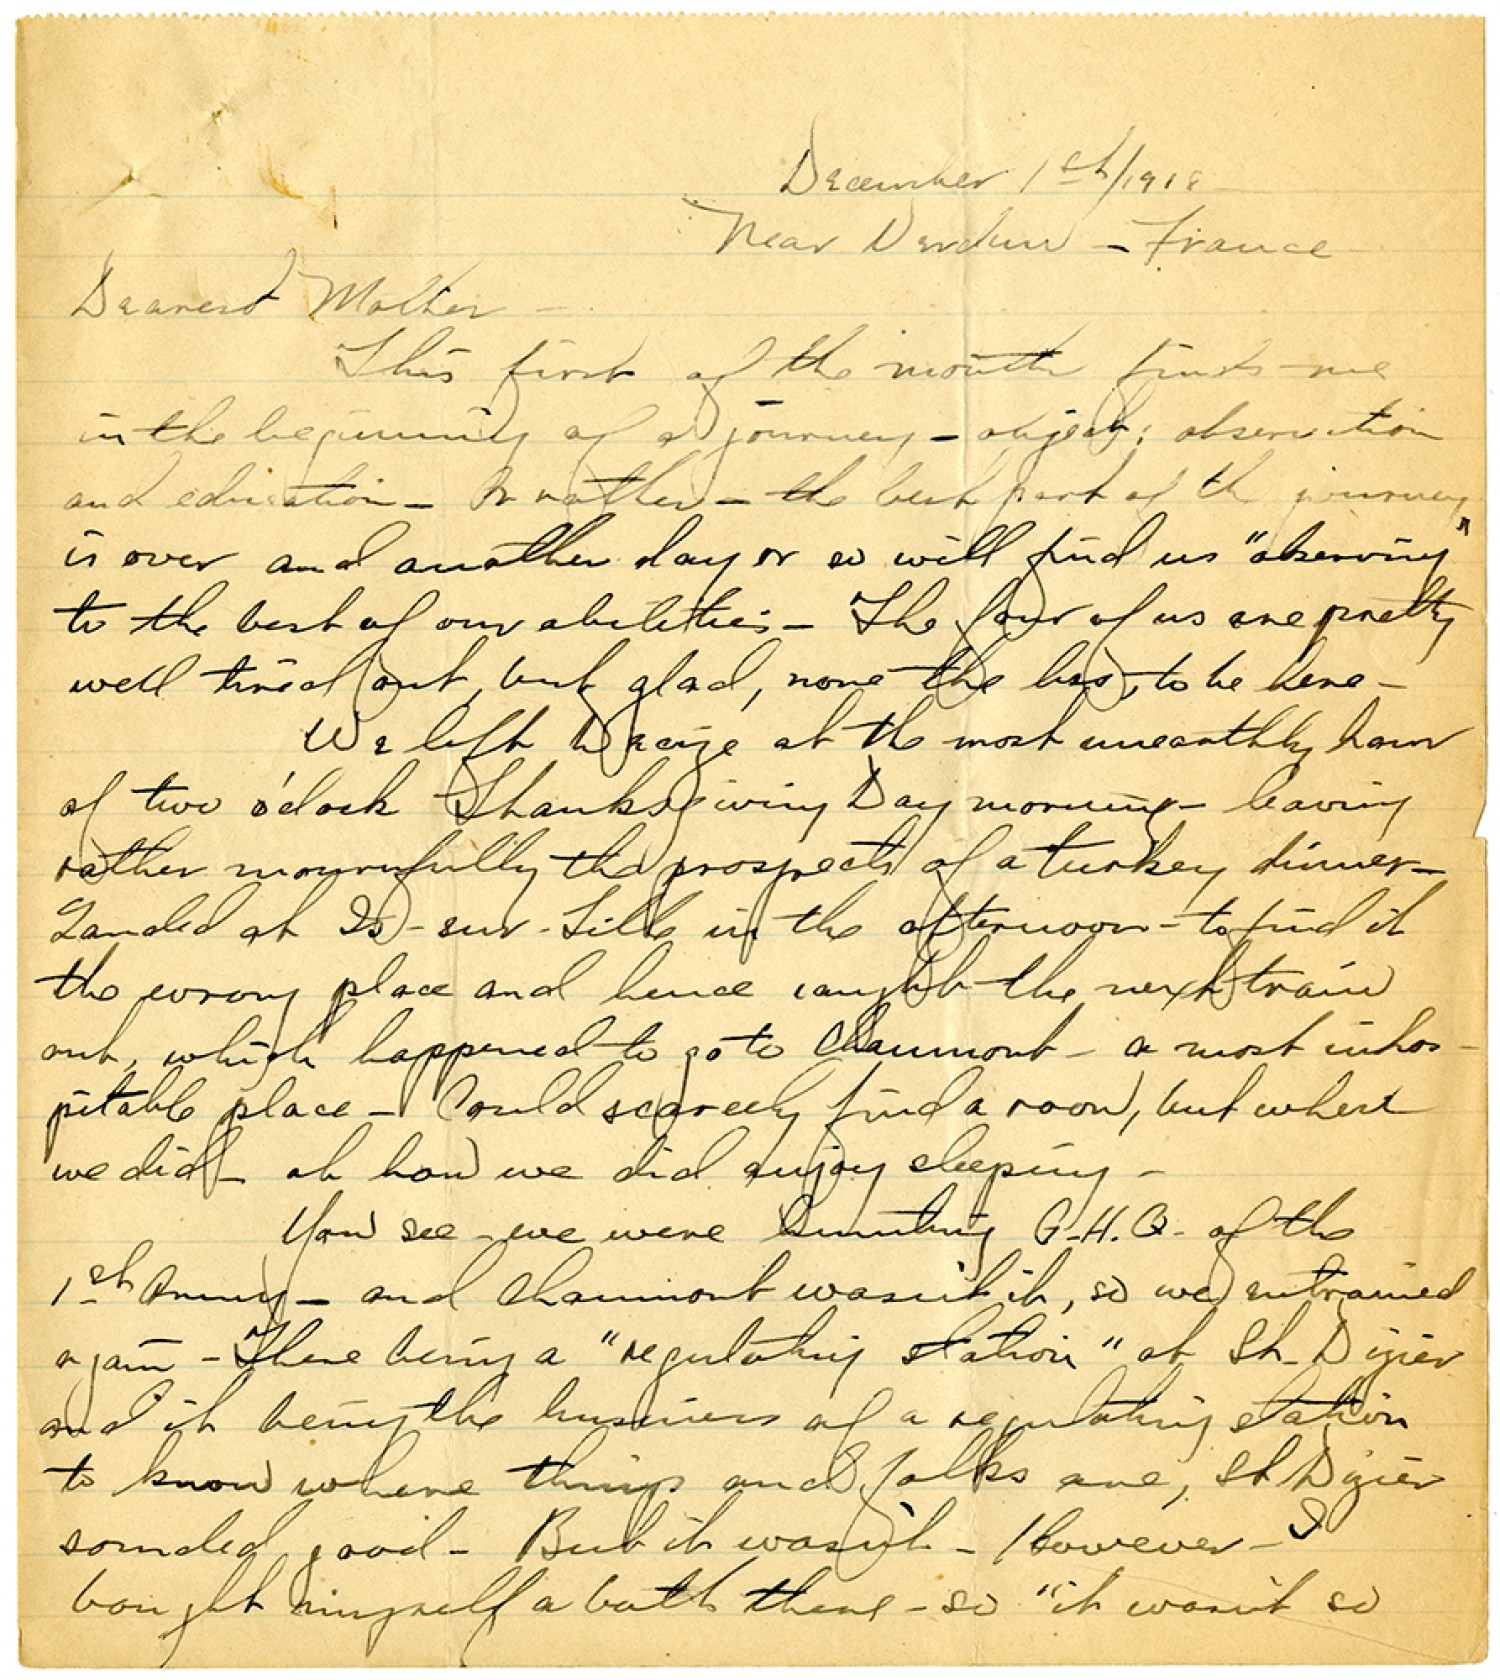 December 1st/1918
Near Verdun – France –
Dearest Mother –
This first of the month finds me
in the beginning of a journey – object: observation
and education – Or rather – the best part of the journey
is over and another day or so will find us "observing"
to the best of our abilities – The four of us are pretty
well tired out, but glad, none the less, to be here –
We left Decize at the most unearthly hour
of two o'clock Thanksgiving Day morning – leaving
rather mournfully the prospects of a turkey dinner –
Landed at Is-sur-Tille in the afternoon – to find it
the wrong place and hence caught the next train
out, which happened to go to Chaumont – a most inhos-
pitable place – Could scarcely find a room, but when
we did – oh how we did enjoy sleeping –
You see – we were hunting G.H.Q. of the
1st Army – and Chaumont wasn't it, so we entrained
again – There being a "regulating station" at St. Dizier
and it being the business of a regulating station
to know where things and folks are, St Dizier
sounded good – But it wasn't – However – I
bought myself a bath there – so "it wasn't so